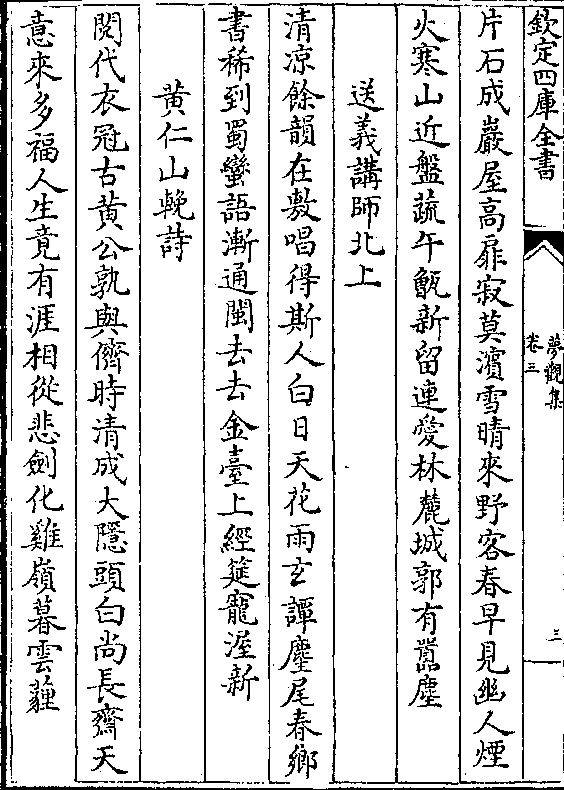 欽定四庫全書
夢觀集
卷三
三
片石成巖屋高扉寂莫濵雪晴來野客春早見幽人煙
火寒山近盤蔬午甑新留連愛林麓城郭有囂塵
送義講師北上
清凉餘韻在敷唱得斯人白日天花雨玄譚麈尾春鄉
書稀到蜀蠻語漸通閩去去金臺上經筵寵渥新
黄仁山輓詩
閱代衣冠古黄公孰與儕時清成大隱頭白尚長齋天
意來多福人生竟有涯相從悲劍化雞嶺暮雲薶